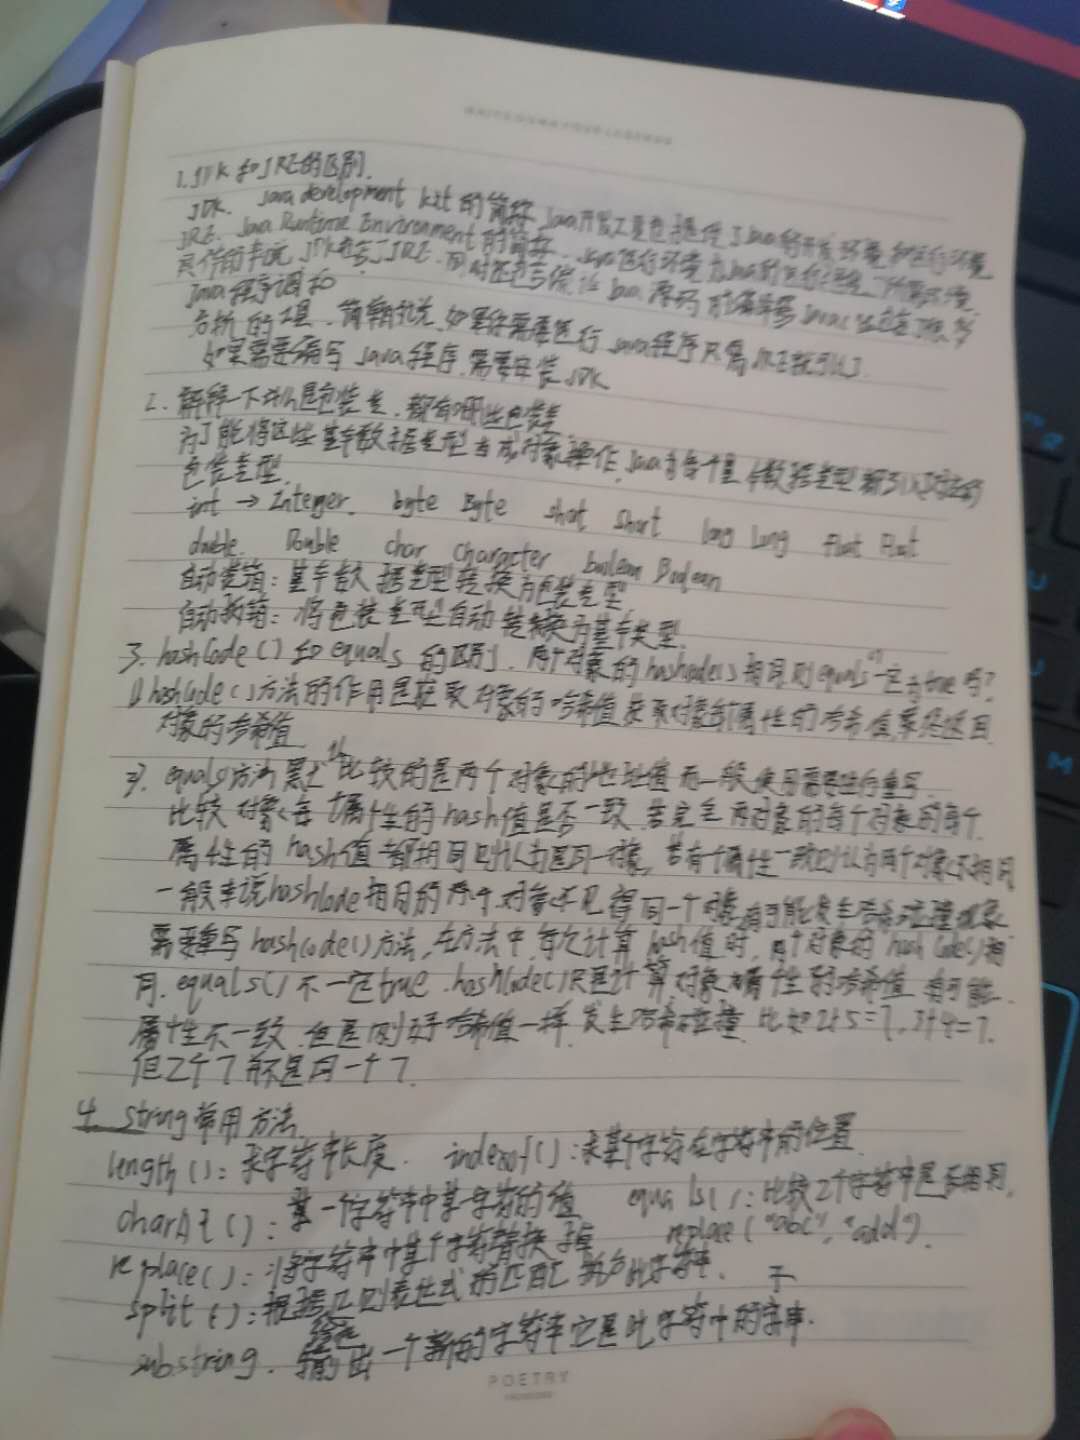 1. JDK 和 JRE的区别.
JDK. Java development kit 的简称 Java开发工具包 提供了Java的开发环境和运行环境
JRE. Java Runtime Environment 的简称. Java运行环境 为Java的运行提供了所需环境.
具体的来说 JDK包含了JRE. 同时还包含编译 Java 源码的编译器 Javac 还包含了很多
Java 程序调和
分析的工具. 简单来说 如果你需要运行 Java程序 只需 JRE就可以了.
如果需要编写 Java程序. 需要安装 JDK
2. 解释一下什么是包装类. 都有哪些包装类
为了能将这些基本数据类型当成对象操作. Java为每个基本数据类型都引入了对应的
包装类型.
int → Integer. byte Byte short Short long Long float Float
double. Double char Character boolean Boolean
自动装箱: 基本数据类型转换为包装类型
自动拆箱: 将包装类型自动转换为基本类型.
3. hashCode() 和 equals 的区别. 两个对象的 hashcode() 相同 则equals一定为true 吗?
hashCode() 方法的作用是获取对象的哈希值 获取对象的属性的哈希值
对象的哈希值
equals方法 默认比较的是两个对象的地址值 而一般使用需要进行重写.
比较对象每个属性的hash值是否一致 若 两对象的每个对象的每个
属性的 hash值都相同 则认为是同一对象, 若有个属性一致 则认为两个对象不相同
一般来说hashCode相同的两个对象不见得同一个对象 有可能发生哈希碰撞现象
需要重写 hashCode() 方法, 在方法中 每次计算 hash值时, 两个对象的 hashCode()相
同. equals() 不一定true. hashCode()只是计算对象属性的哈希值 有可能.
属性不一致 但是 哈希值一样. 发生哈希碰撞. 比如2+5=7, 3+4=7.
但2个7 并不是同一个7.
4. string常用方法
length(): 求字符串长度. indexof(): 求某个字符在字符串的位置
charAt(): 某一个字符串中某字符的值 equals(): 比较2个字符串是否相同.
replace(): 将字符串中某个字符替换掉 replace("abc", "add").
split(): 根据正则表达式的匹配 拆分此字符串. 子
substring. 输出一个新的字符串 它是此字符串的字串.
POETRY